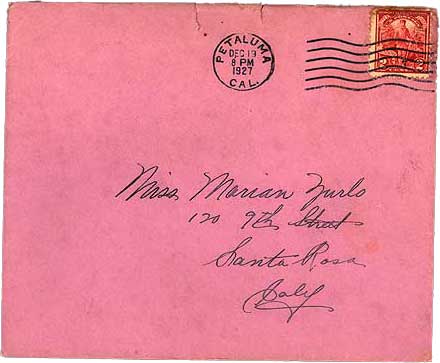 PETALUMA
DEC 19
8 PM
1927
CAL.
Miss Marian Zurlo
120 9th Street
Santa Rosa
Calif